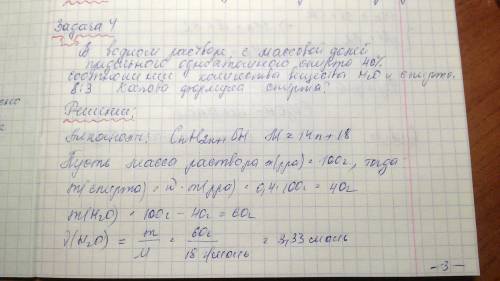 Задача 4
В водном растворе с массовой долей
предельного одноатомного спирта 40%
соотношение количества вещества H₂O и спирта
8:3 Какова формула спирта?
Решение:
CnH2n+1OH M = 14n+18
Пусть масса раствора m(рра) = 100г, тогда
m(спирта) = w · m(рра) = 0,4·100г = 40г
m(H₂O) = 100г - 40г = 60г
ν(H₂O) = m/M = 60г/18 г/моль = 3,33 моль
-3-